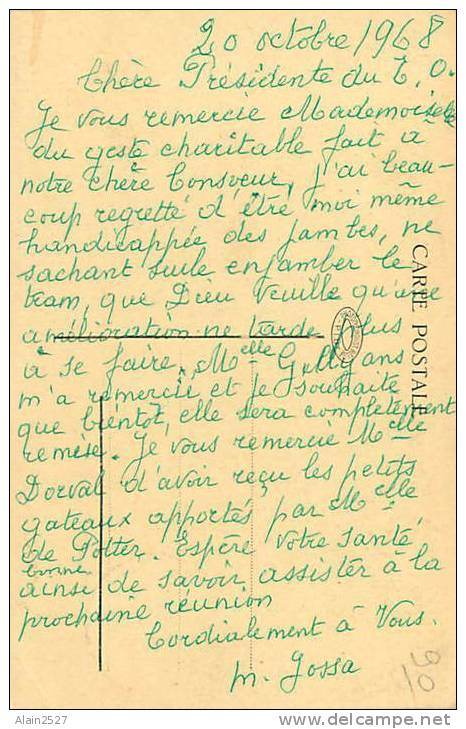 20 octobre 1968
Chère Présidente du T.O.
Je vous remercie Mademoiselle
du geste charitable fait à
notre chère Consoeur, j'ai beau-
coup regretté d'être moi même
handicappée des jambes, ne
sachant seule enjamber le
tram, que Dieu veuille qu'une
amélioration ne tarde plus
à se faire. Melle Gillyans
m'a remercié et je souhaite
que bientôt, elle sera complètement
remise. Je vous remercie Melle
Dorval d'avoir reçu les petits
gateaux apportés par Melle
de Potter. Espère votre santé
bonne
ainsi de savoir assister à la
prochaine réunion
Cordialement à Vous.
M. Jossa
CARTE POSTALE
Alain2527
http://www.delcampe.net